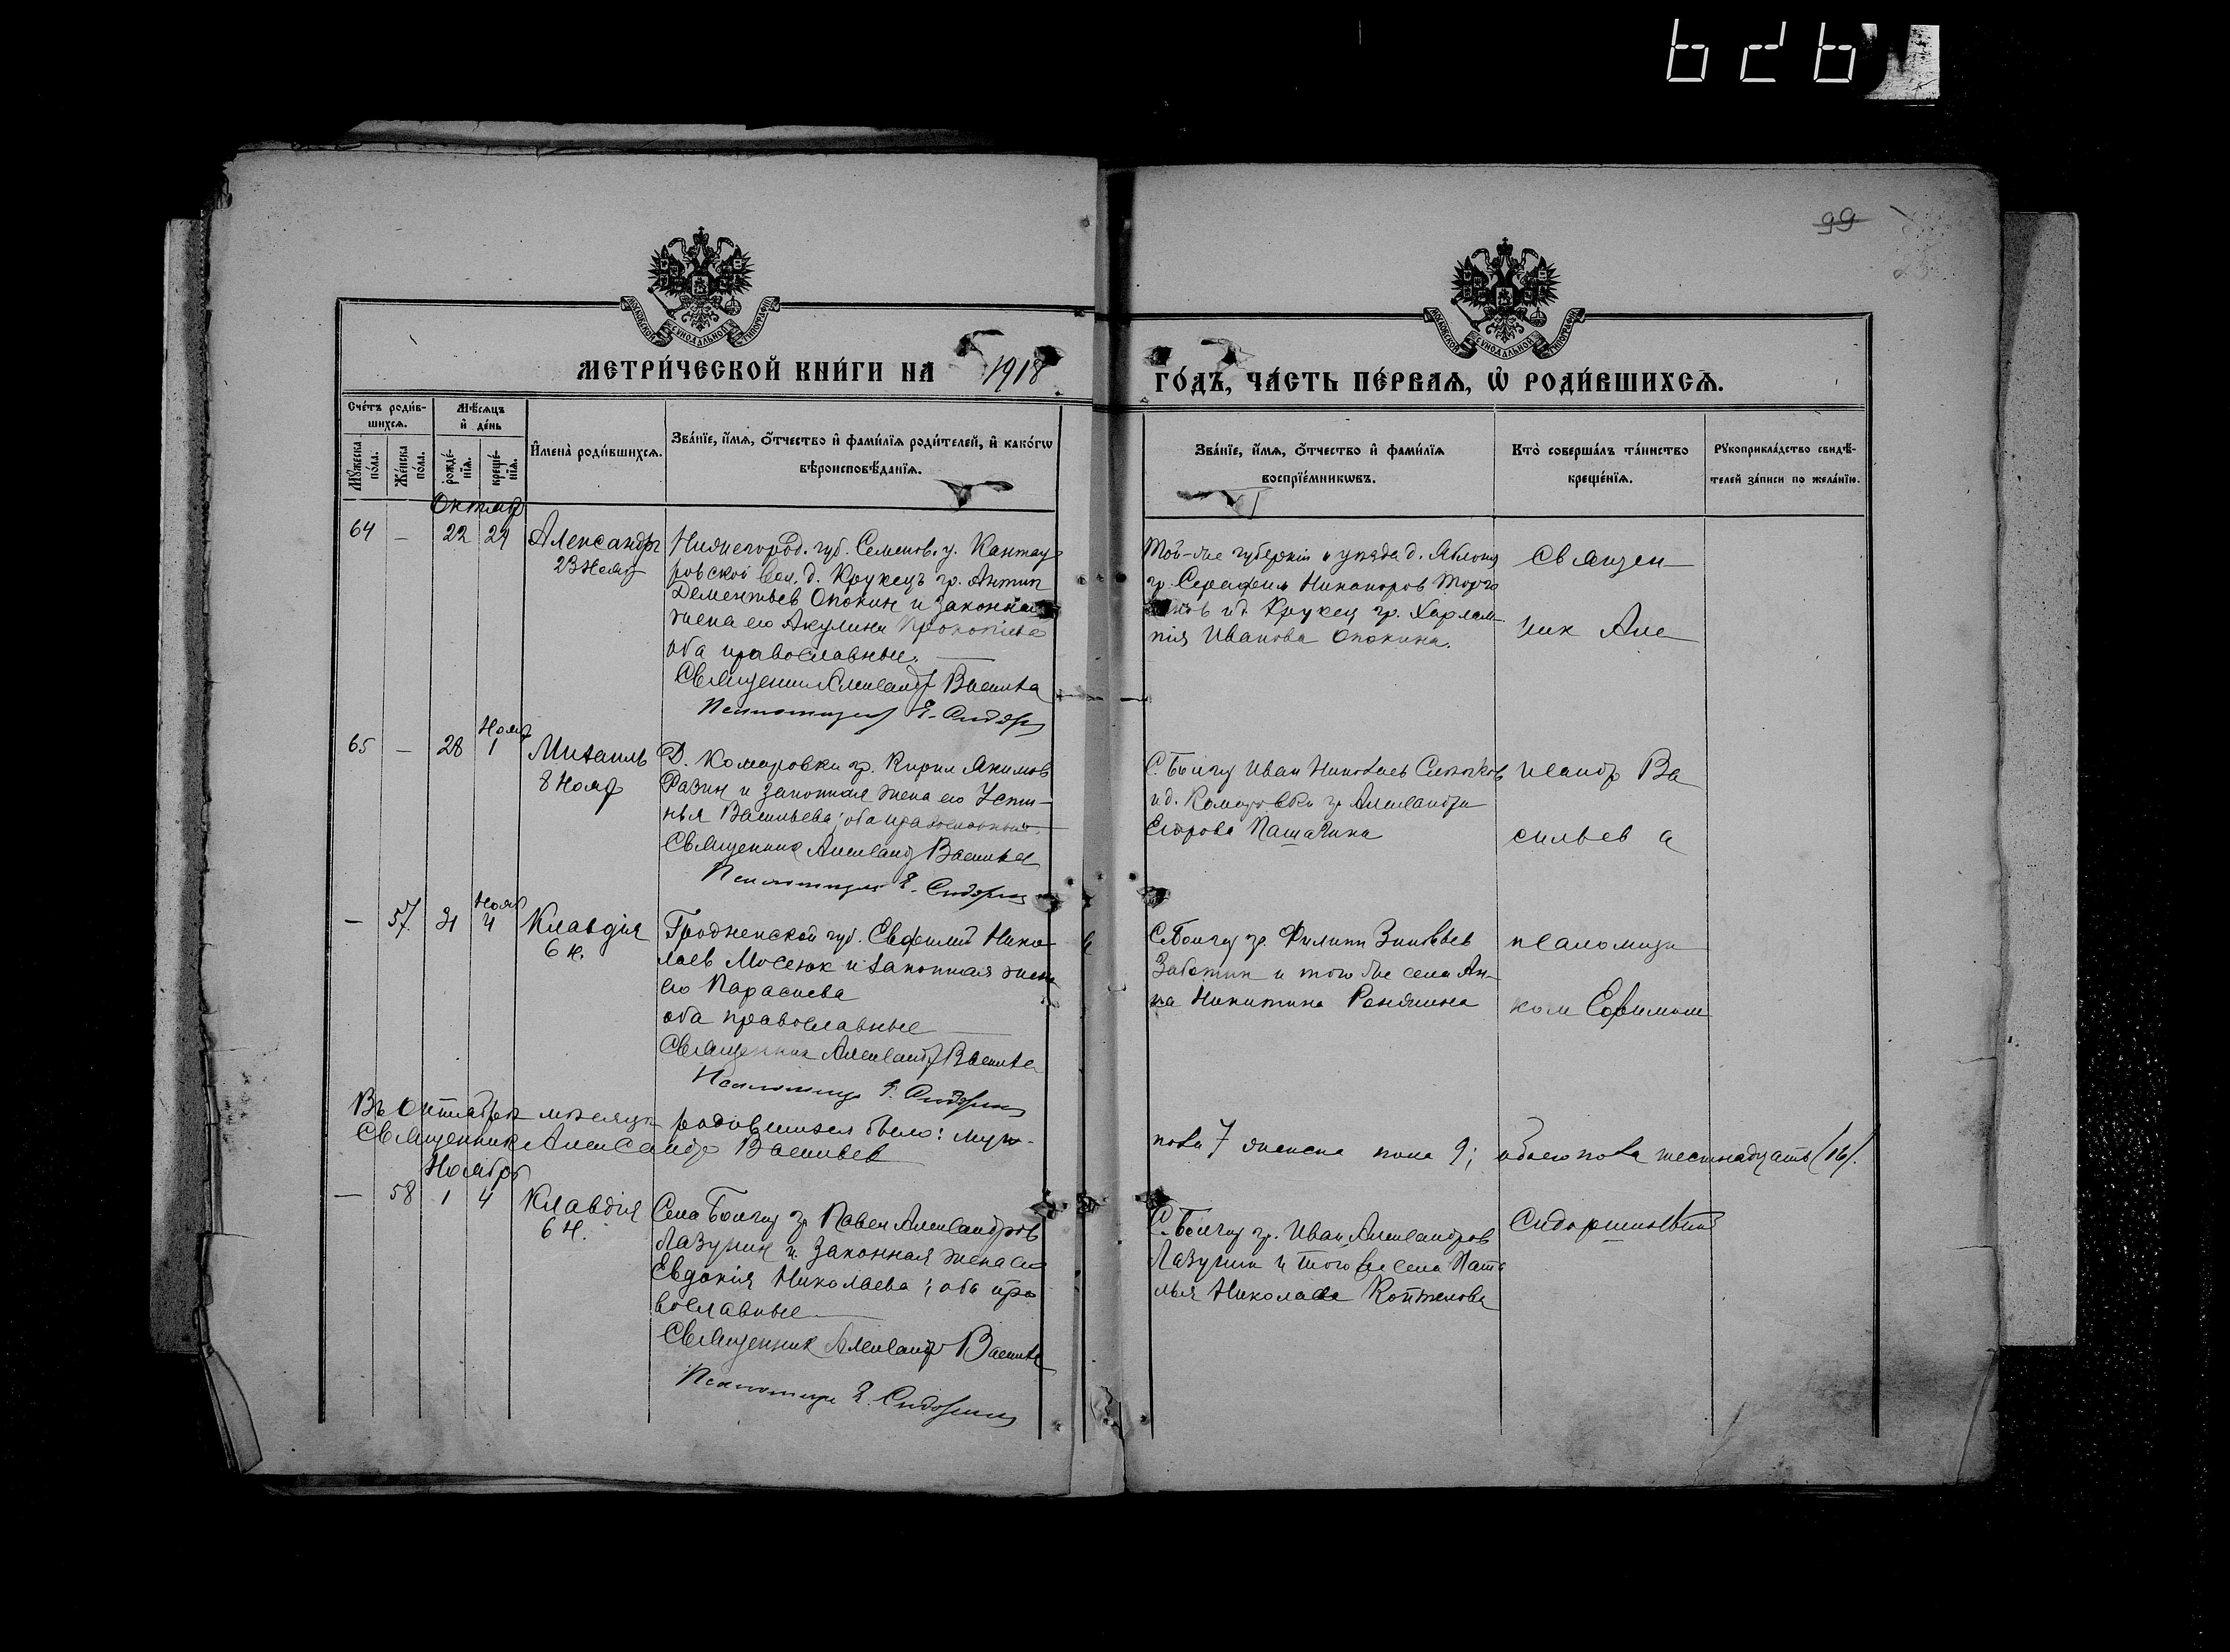 99
МЕТРИ́ЧЕСКОЙ КНИ́ГИ НА 1918
ГО́ДЪ, ЧА́СТЬ ПЕ́РВАѦ, Ѡ РОДИ́ВШИХСѦ.
Сче́тъ роди́в-
шихсѧ.
Мꙋ́жеска
по́ла.
Же́нска
по́ла.
Мѣ́сѧцъ
и де́нь
рожде́-
нїѧ.
креще́-
нїѧ.
Имена̀ роди́вшихсѧ.
Зва́нїе, и́мѧ, ѻ́тчество и фами́лїѧ роди́телей, и како́гѡ
вѣроисповѣ́данїѧ.
Зва́нїе, и́мѧ, ѻ́тчество и фами́лїѧ
воспрїе́мникѡвъ.
Кто̀ соверша́лъ та́инство
креще́нїѧ.
Рꙋкоприкла́дство свидѣ́-
телей за́писи по жела́нїю.
Октяб
64 — 22 24
Александр
23 Нояб
Нижегород. губ. Семенов. у. Кантау-
ровской вол. д. Крукецъ гр. Антип
Дементьев Опокин и законная
жена его Акулина Прокопіева
оба православные.
Священник Александр Васильев
Псаломщик Е. Сидорин
Той-же губерніи и уезда д.
гр. Серафим Никаноров
и д. Крукец гр. Харлам-
пія Иванова Опокина.
Священ
ник Але
65 — 28 Нояб 1
Михаилъ
8 Нояб
Д. Комаровки гр. Кирил Якимов
Разин и законная жена его Усти-
нья Васильева; оба православные
Священник Александр Васильев
Псаломщик Е. Сидорин
Иван Николаев
и д. Комаровки гр. Александра
Егорова
ксандр Ва
сильев а
— 57 31 Нояб 4
Клавдія
6 Н.
Гродненской губ. Евфимий Нико-
лаев Мосеюк и законная жена
его Параскева
оба православные
Священник Александр Васильев
Псаломщик Е. Сидорин
гр. Филипп Зиновьев
Заботин и того же села Ан-
на Никитина
псаломщи
ком Ефимом
Въ Октябрѣ мѣсяцѣ родившихся было: муж-
пола 7 женска пола 9; обоего пола шестнадцать (16).
Священник Александр Васильев
Ноябрь
— 58 1 4
Клавдія
6 Н.
Села гр. Павел Александров
Лазукин и законная жена его
Евдокія Николаева; оба пра
вославные
Священник Александр Васильев
Псаломщик Е. Сидорин
гр. Иван Александров
Лазукин и того же села Ната
лья Николаева Коптелова